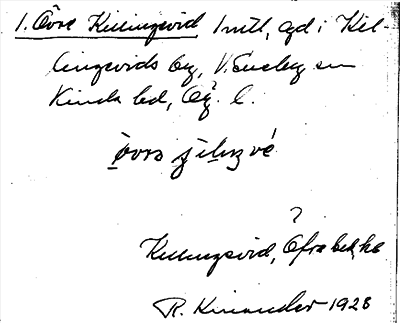 1. Övre Killingevid 1 mtl, gd i Kil-
lingevids by, V. Eneby sn
Kinda hd, Ög. l.
övrə
Killingevid, Öfra
R. Kinander 1928